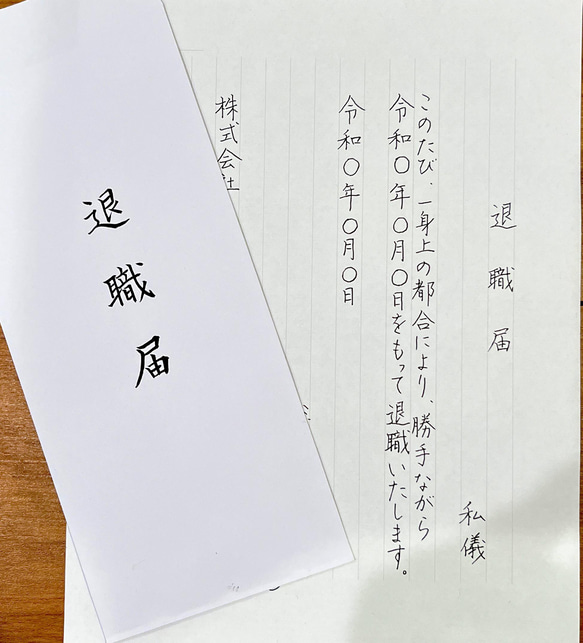 退職届
私儀
このたび、一身上の都合により、勝手ながら
令和〇年〇月〇日をもって退職いたします。
令和〇年〇月〇日
株式会社
退職届